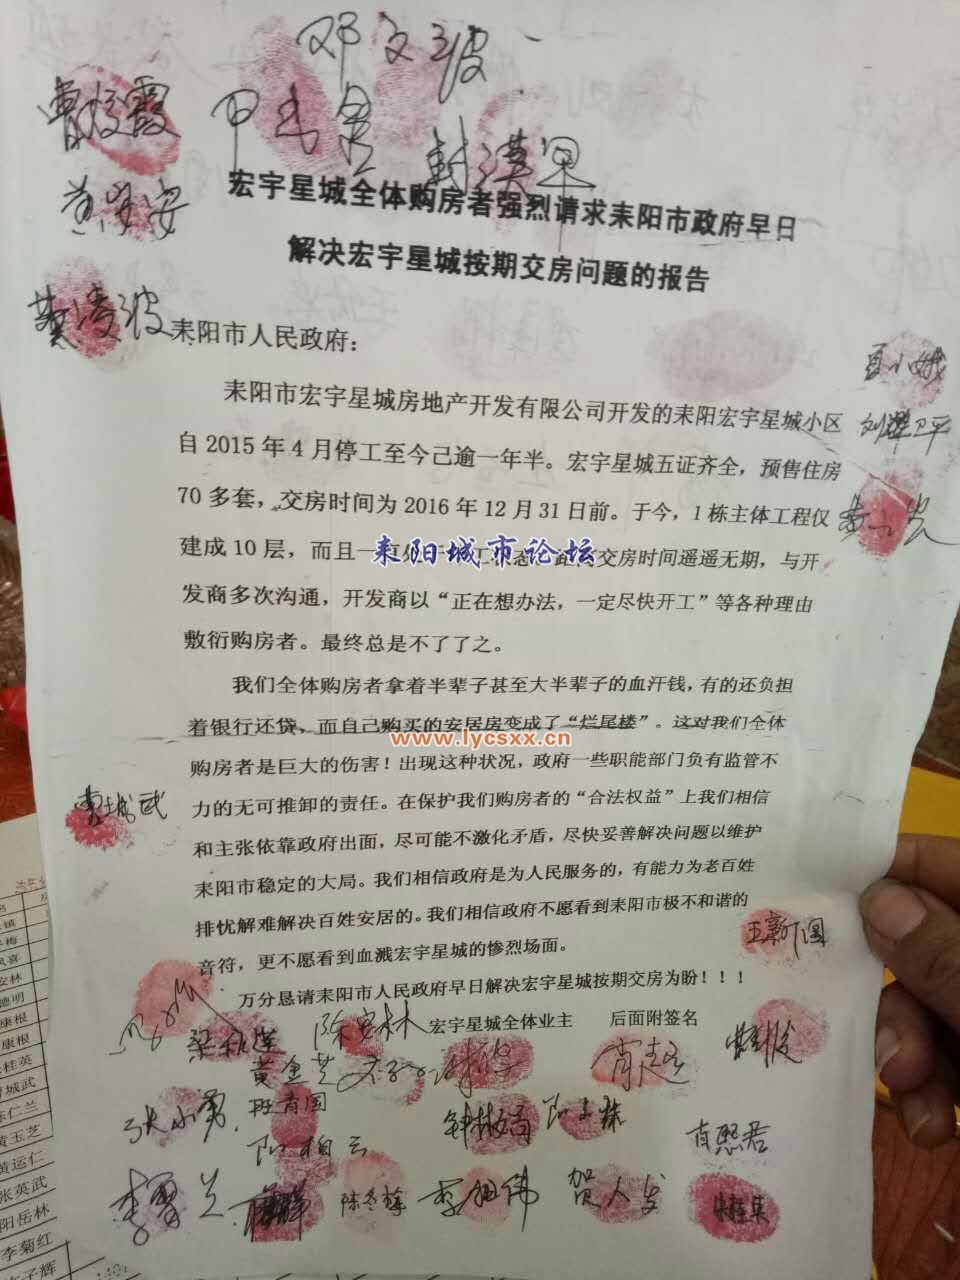 邓文波
曹校霞
封漢果
宏宇星城全体购房者强烈请求耒阳市政府早日
解决宏宇星城按期交房问题的报告
黄凌波
耒阳市人民政府：
耒阳市宏宇星城房地产开发有限公司开发的耒阳宏宇星城小区
自 2015 年 4 月停工至今己逾一年半。宏宇星城五证齐全，预售住房
70 多套，交房时间为 2016 年 12 月 31 日前。于今，1 栋主体工程仅
建成 10 层，而且一 交房时间遥遥无期，与开
耒阳城市论坛
发商多次沟通，开发商以“正在想办法，一定尽快开工”等各种理由
敷衍购房者。最终总是不了了之。
我们全体购房者拿着半辈子甚至大半辈子的血汗钱，有的还负担
着银行还贷，而自己购买的安居房变成了“烂尾楼”。这对我们全体
www.lycsxx.cn
购房者是巨大的伤害！出现这种状况，政府一些职能部门负有监管不
力的无可推卸的责任。在保护我们购房者的“合法权益”上我们相信
和主张依靠政府出面，尽可能不激化矛盾，尽快妥善解决问题以维护
耒阳市稳定的大局。我们相信政府是为人民服务的，有能力为老百姓
排忧解难解决百姓安居的。我们相信政府不愿看到耒阳市极不和谐的
音符，更不愿看到血溅宏宇星城的惨烈场面。
万分恳请耒阳市人民政府早日解决宏宇星城按期交房为盼！！！
宏宇星城全体业主 后面附签名
曹城武
王新国
梁秋莲
陈安林
黄金芝
张小勇
钟林娟
肖熙君
阳柏云
陈冬梅
李旭伟
贺人发
凤喜
安林
德明
康根
康根
桂英
城武
仁兰
黄玉芝
黄运仁
张英武
阳岳林
李菊红
子辉